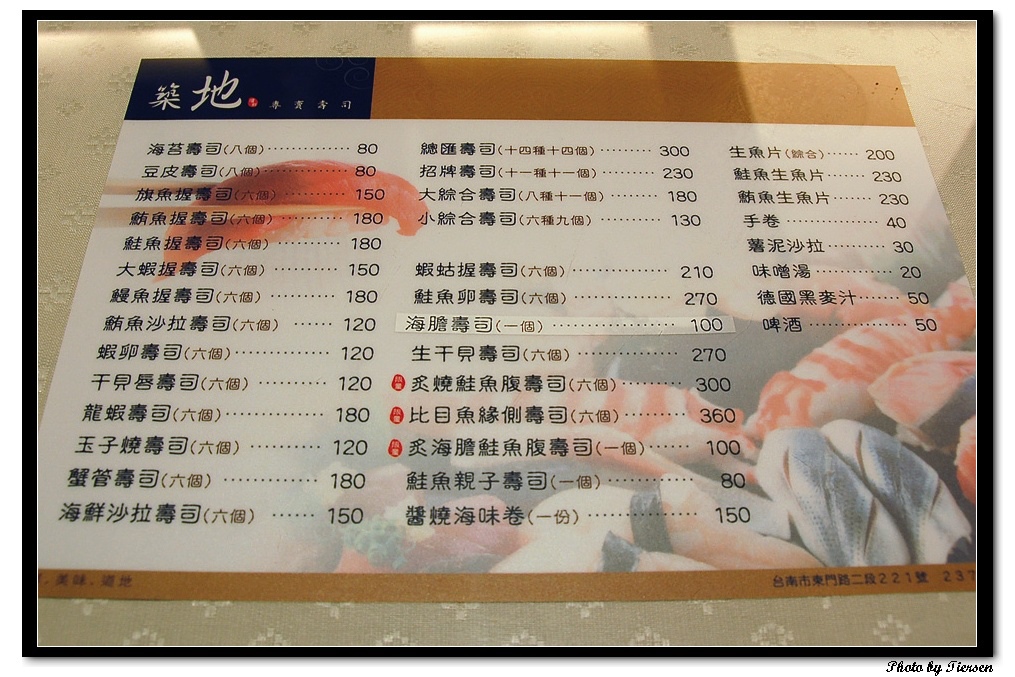 築地 專賣壽司
海苔壽司(八個)·············· 80
豆皮壽司(八個)·············· 80
旗魚握壽司(六個)··········· 150
鮪魚握壽司(六個)··········· 180
鮭魚握壽司(六個)··········· 180
大蝦握壽司(六個)··········· 150
鰻魚握壽司(六個)··········· 180
鮪魚沙拉壽司(六個)········ 120
蝦卵壽司(六個)·············· 120
干貝唇壽司(六個)··········· 120
龍蝦壽司(六個)·············· 180
玉子燒壽司(六個)··········· 120
蟹管壽司(六個)·············· 180
海鮮沙拉壽司(六個)········ 150
總匯壽司(十四種十四個)········ 300
招牌壽司(十一種十一個)········ 230
大綜合壽司(八種十一個)········ 180
小綜合壽司(六種九個)·········· 130
蝦蛄握壽司(六個)··············· 210
鮭魚卵壽司(六個)··············· 270
海膽壽司(一個)·················· 100
生干貝壽司(六個)··············· 270
限量 炙燒鮭魚腹壽司(六個)········· 300
限量 比目魚緣側壽司(六個)········· 360
限量 炙海膽鮭魚腹壽司(一個)······ 100
鮭魚親子壽司(一個)············ 80
醬燒海味卷(一份)··············· 150
生魚片(綜合)······ 200
鮭魚生魚片········ 230
鮪魚生魚片········ 230
手卷··············· 40
薯泥沙拉··········· 30
味噌湯·············· 20
德國黑麥汁········ 50
啤酒················ 50
．美味．道地
台南市東門路二段221號 237
Photo by Tiersen